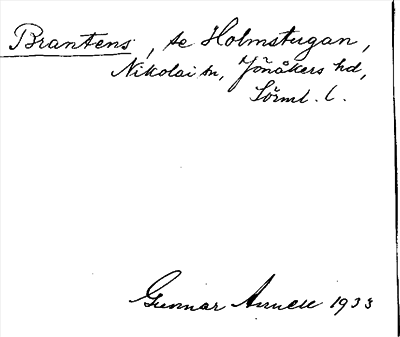 Brantens, se Holmstugan,
Nikolai sn, Jönåkers hd,
Sörml. l.
Gunnar 1933